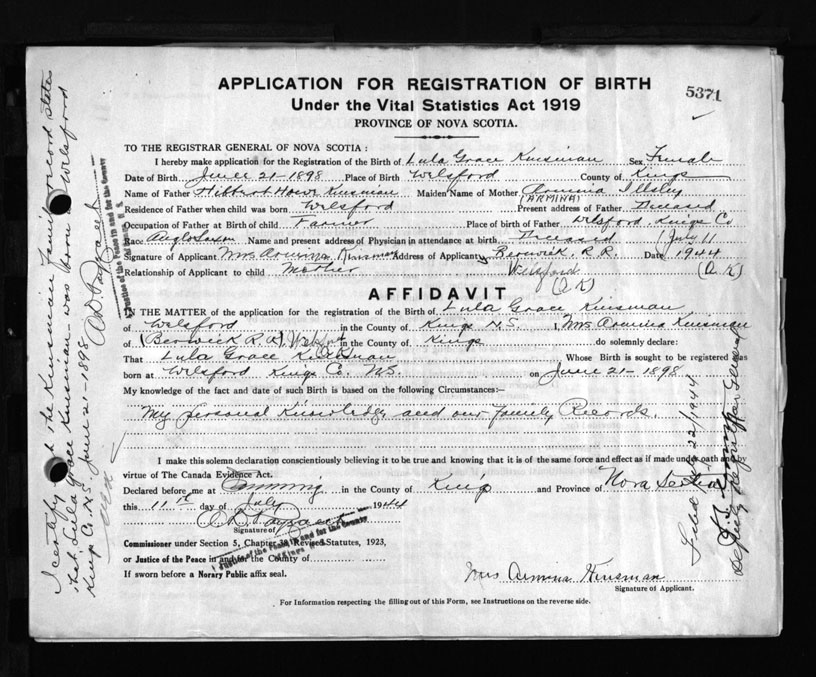 APPLICATION FOR REGISTRATION OF BIRTH
5371
Under the Vital Statistics Act 1919
PROVINCE OF NOVA SCOTIA.
TO THE REGISTRAR GENERAL OF NOVA SCOTIA :
I hereby make application for the Registration of the Birth of Lula Grace Kinsman Sex Female
Date of Birth June 21-1898 Place of Birth Welsford County of Kings
Name of Father Hibbert Howe Kinsman Maiden Name of Mother Armina Illsley
(ARMINA)
Residence of Father when child was born Welsford Present address of Father Deceased
Occupation of Father at Birth of child Farmer Place of birth of Father Welsford Kings Co
Race AngloSaxon Name and present address of Physician in attendance at birth Deceased (July 11
Signature of Applicant Mrs Armina Kinsman Address of Applicant Berwick, R.R. Date 1944
Relationship of Applicant to child Mother Welsford (A K)
(A K)
AFFIDAVIT
IN THE MATTER of the application for the registration of the Birth of Lula Grace Kinsman
of Welsford in the County of Kings N.S. I, Mrs Armina Kinsman
of (Berwick R R) Welsford in the County of Kings do solemnly declare:
That Lula Grace Kinsman Whose Birth is sought to be registered was
born at Welsford Kings Co. N.S. on June 21-1898
My knowledge of the fact and date of such Birth is based on the following Circumstances:—
My personal Knowledge and our Family Records.
I make this solemn declaration conscientiously believing it to be true and knowing that it is of the same force and effect as if made under oath and by
virtue of The Canada Evidence Act.
Declared before me at in the County of King's and Province of Nova Scotia
this 11th day of July 1944
Signature of
Commissioner under Section 5, Chapter Revised Statutes, 1923,
or Justice of the Peace in and for the County of
Justice of the Peace in and for the County of Kings
If sworn before a Notary Public affix seal.
Mrs Armina Kinsman
Signature of Applicant.
For Information respecting the filling out of this Form, see Instructions on the reverse side.
I certify the Kinsman Family record states
that Lula Grace Kinsman was born Welsford
Kings Co. N.S. June 21-1898
Justice of the Peace in and for the County of Kings, N. S.
Filed July 22/1944
Deputy Registrar General